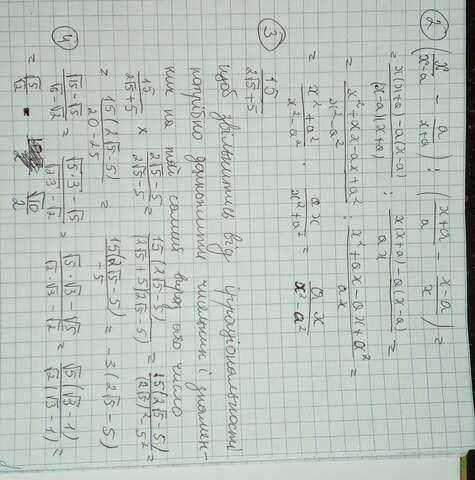 2) (x/(x-a) - a/(x+a)) : ((x+a)/a - (x-a)/x) =
= (x(x+a) - a(x-a))/((x-a)(x+a)) : (x(x+a) - a(x-a))/(ax) =
= (x²+ax-ax+a²)/(x²-a²) : (x²+ax-ax+a²)/(ax) =
= (x²+a²)/(x²-a²) · (ax)/(x²+a²) = (ax)/(x²-a²)
3) 15/(2√5+5)
щоб звільнитись від ірраціональності
потрібно домножити чисельник і знамен-
ник на той самий вираз або число
15/(2√5+5) × (2√5-5)/(2√5-5) = 15(2√5-5)/(2√5+5)(2√5-5) = 15(2√5-5)/((2√5)²-5²) =
= 15(2√5-5)/(20-25) = 15(2√5-5)/(-5) = -3(2√5-5)
4) (√15-√5)/(√6-√2) = (√5·3-√5)/(√2·3-√2) = (√5·√3-√5)/(√2·√3-√2) = √5(√3-1)/√2(√3-1) =
= √5/√2 = √10/2